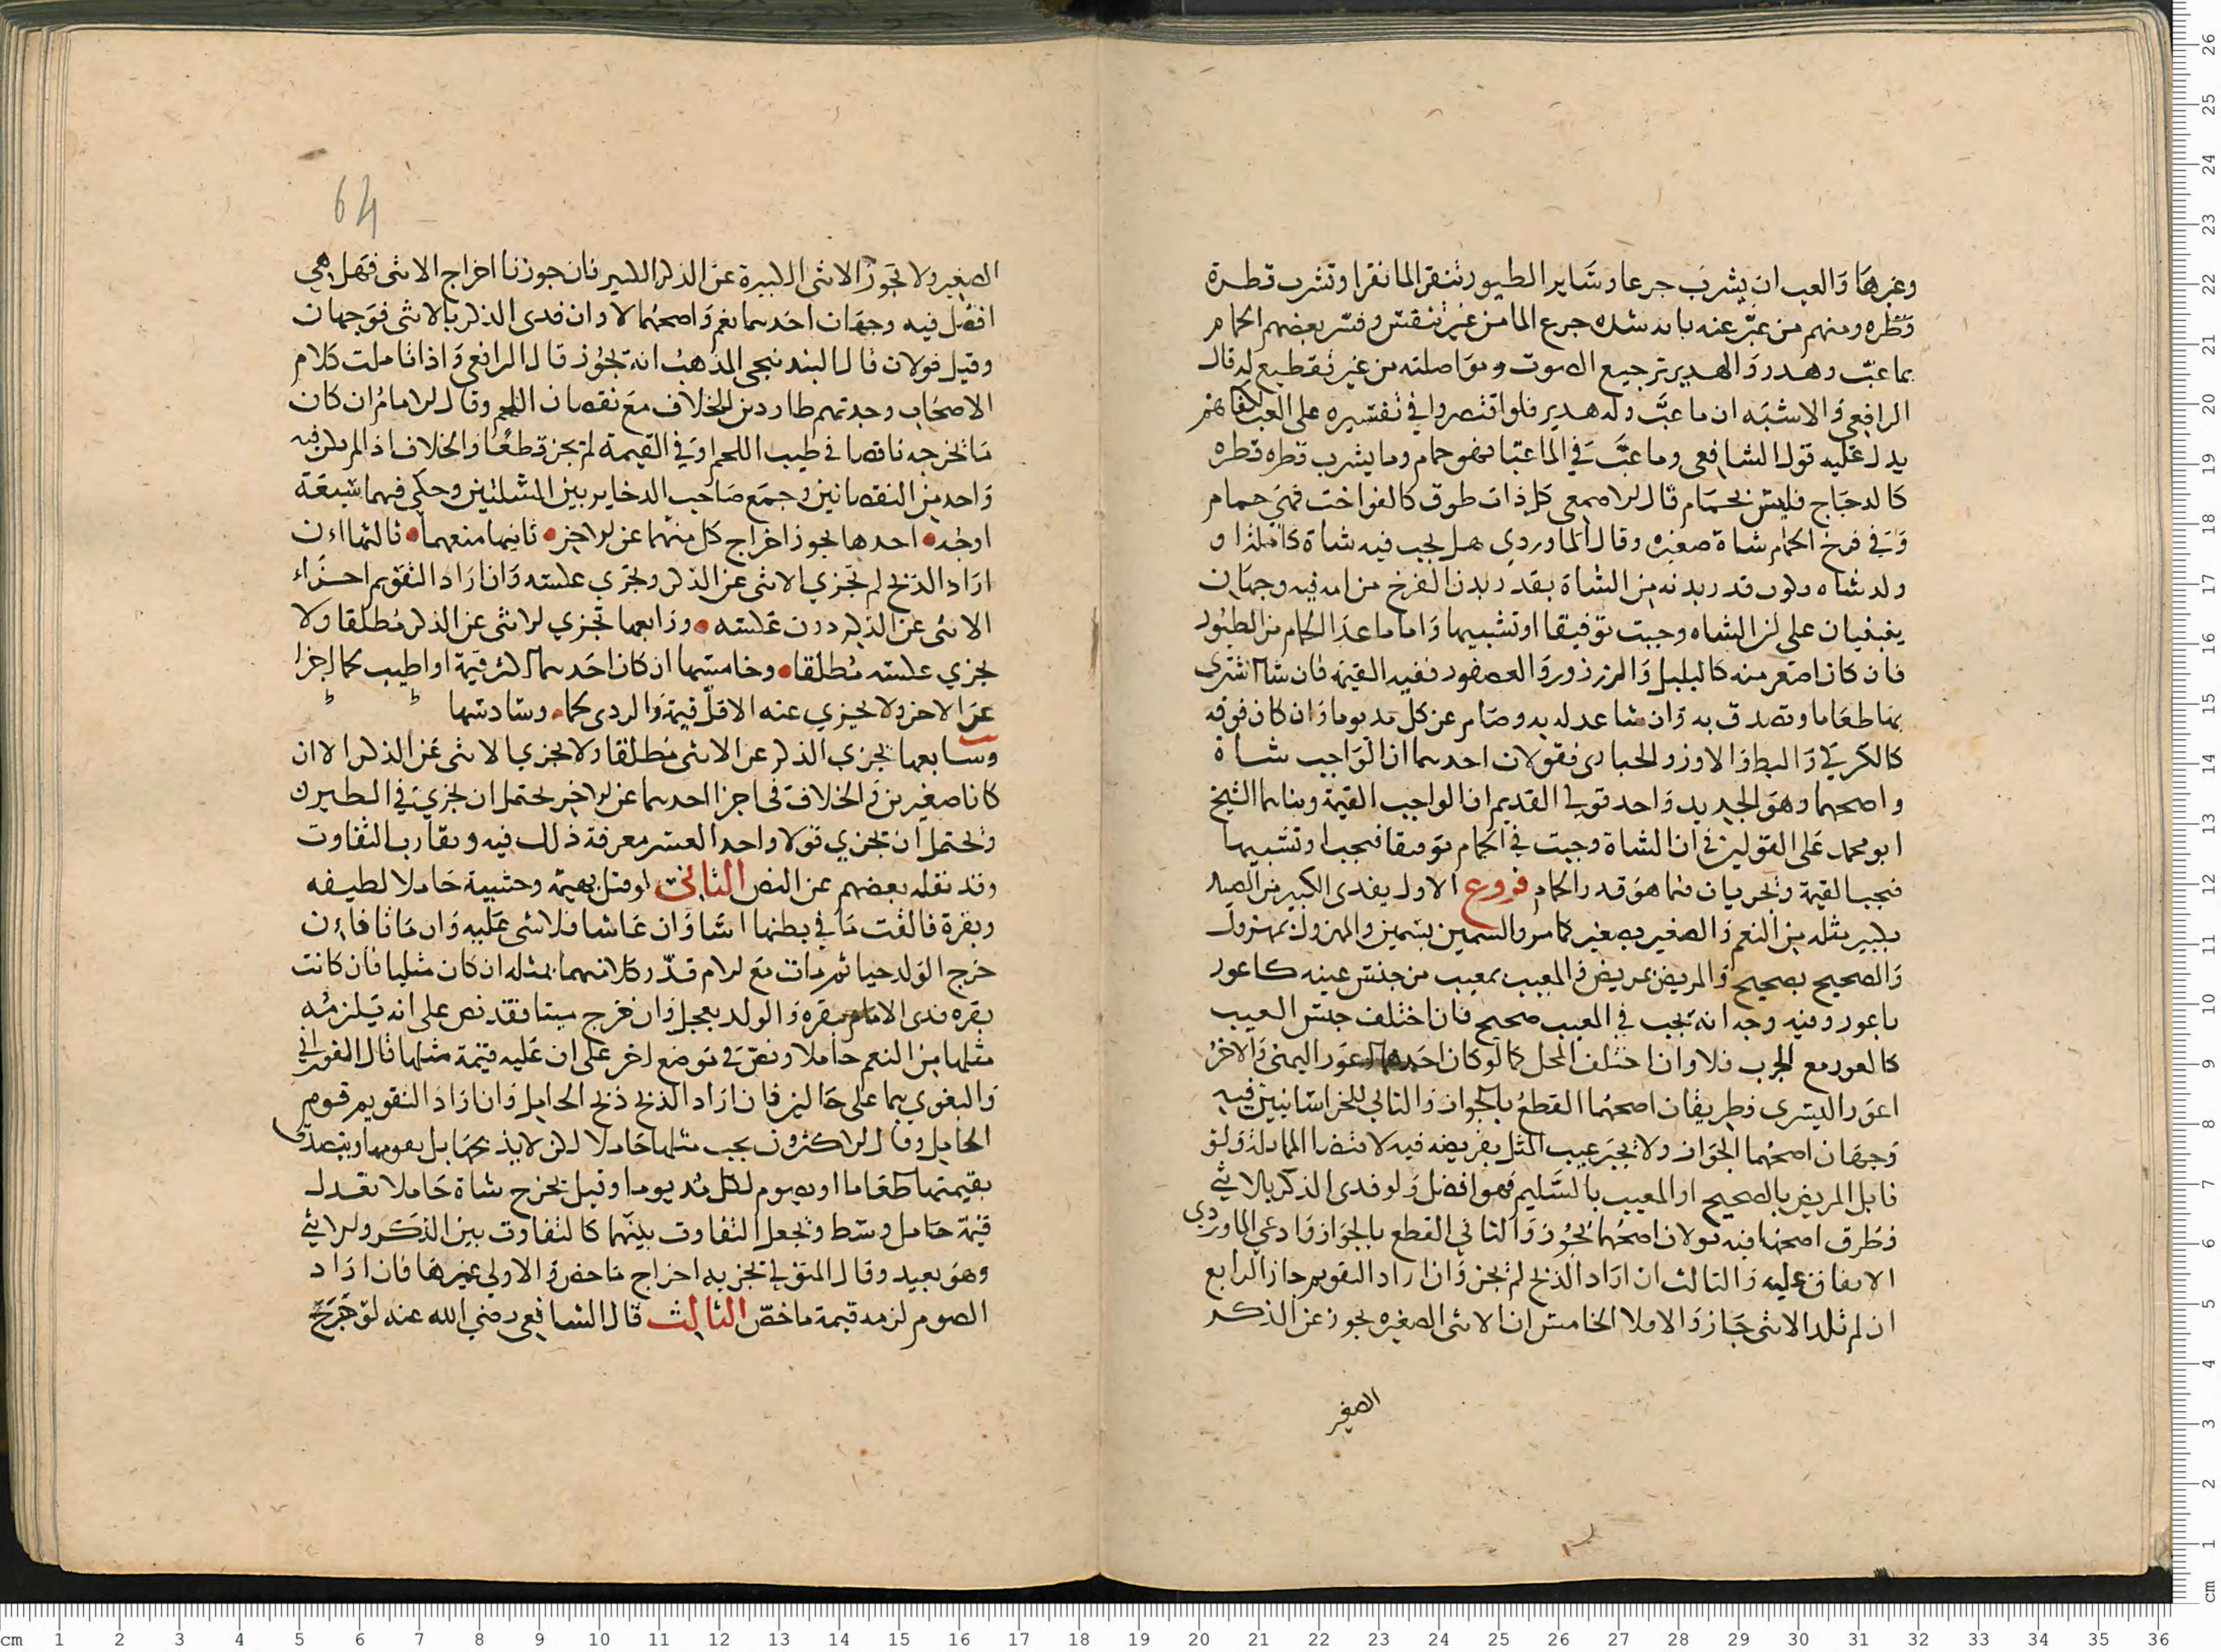 وغيرها والعب ان يشرب جرعا وساير الطيور تنقر الما نقرا وتشرب قطرة
قطره ومنهم من عبر عنه بانه شدة جرع الما من غير تنفس وفسر بعضهم الحمام
بما عبّ وهدر والهدير ترجيع الصوت ومواصلته من غير تقطيع له قال
الرافعي والاشبه ان ما عبّ وله هدير فلو اقتصروا في تفسيره على العب لكفاهم
يدل عليه قول الشافعي وما عبّ في الما عبّا فهو حمام وما يشرب قطره قطره
كالدجاج فليس بحمام قال الاصمعي كل ذات طوق كالفواخت فهي حمام
وفي فرخ الحمام شاة صغيره وقال الماوردي هل يجب فيه شاة كامله او
ولد شاه يكون قدر بدنه من الشاة بقدر بدن الفرخ من امه فيه وجهان
يبنيان على ان الشاه وجبت توقيفا او تشبيها واما ما عدا الحمام من الطيور
فان كان اصغر منه كالبلبل والزرزور والعصفور ففيه القيمة فان شا اشترى
بها طعاما وتصدق به وان شا عدله به وصام عن كل مد يوما وان كان فوقه
كالكركي والبط والاوز والحبارى فقولان احدهما ان الواجب شاة
واصحهما وهو الجديد واحد قولي القديم ان الواجب القيمة وبناهما الشيخ
ابو محمد على القولين في ان الشاة وجبت في الحمام توقيفا فيجب او تشبيها
فيجب القيمة ويجريان فيما هو قدر الحمام فروع الاول يفدى الكبير من الصيد
بكبير مثله من النعم والصغير بصغير كما مر والسمين بسمين والمهزول بمهزول
والصحيح بصحيح والمريض بمريض والمعيب بمعيب من جنس عيبه كاعور
باعور وفيه وجه انه يجب في المعيب صحيح فان اختلف جنس العيب
كالعور مع الجرب فلا وان اختلف المحل كما لو كان احدهما اعور اليمنى والاخر
اعور اليسرى فطريقان اصحهما القطع بالجواز والثاني للخراسانيين فيه
وجهان اصحهما الجواز ولا يجبر عيب المثل بفريضه فيه لاقتضا المماثله ولو
قابل المريض بالصحيح او المعيب بالسليم فهو افضل ولو فدى الذكر بالانثى
فطرق اصحها فيه قولان اصحهما يجوز والثاني القطع بالجواز وادعى الماوردي
الاتفاق عليه والثالث ان اراد الذبح لم يجز وان اراد التقويم جاز الرابع
ان لم تلد الانثى جاز والا فلا الخامس ان الانثى الصغيره يجوز عن الذكر
الصغير
64
الصغير ولا تجوز الانثى الكبيرة عن الذكر الكبير فان جوزنا اخراج الانثى فهل هي
افضل فيه وجهان احدهما نعم واصحهما لا وان فدى الذكر بالانثى فوجهان
وقيل قولان قال البندنيجي المذهب انه يجوز قال الرافعي واذا تاملت كلام
الاصحاب وجدتهم طاردين للخلاف مع نقصان اللحم وقال الامام ان كان
ما يخرجه ناقصا في طيب اللحم او في القيمة لم يجز قطعا والخلاف اذا لم يكن فيه
واحد من النقصانين وجمع صاحب الدخاير بين المسلتين وحكى فيهما سبعة
اوجه احدها يجوز اخراج كل منهما عن الاخر ثانيها منعهما ثالثها ان
اراد الذبح لم تجزي الانثى عن الذكر ويجزي عكسه وان اراد التقويم اجزاء
الانثى عن الذكر دون عكسه ورابعها تجزي الانثى عن الذكر مطلقا ولا
يجزي عكسه مطلقا وخامسها ان كان احدهما اكثر قيمة او اطيب لحما اجزا
عن الاخر ولا يجزي عنه الاقل قيمة والردى لحما وسادسها
وسابعها يجزي الذكر عن الانثى مطلقا ولا يجزي الانثى عن الذكر الا ان
كانا صغيرين والخلاف في اجزا احدهما عن الاخر يحتمل ان يجزي في الطيرك
ويحتمل ان تجزي قولا واحدا لعسر معرفة ذلك فيه وتقارب التفاوت
وقد نقله بعضهم عن النص الثاني لو قتل بهيمة وحشيية حاملا لطيفه
وبقرة فالقت ما في بطنها اشا وان عاشا فلا شى عليه وان ماتا فان
خرج الولد حيا ثم مات مع الام فدى كلا منهما بمثله ان كان مثليا فان كانت
بقره فدى الام ببقره والولد بعجل وان خرج ميتا فقد نص على انه يلزمه
مثلها من النعم حاملا ونص في موضع اخر على ان عليه قيمة مثلها قال الفوراني
والبغوي هما على حالين فان اراد الذبح ذبح الحامل وان اراد التقويم قوم
الحامل وقال الاكثرون يجب مثلها حاملا لكن لا يذبحها بل يقومها ويتصدق
بقيمتها طعاما او يصوم لكل مد يوما وقيل يخرج شاة حاملا تعدل
قيمة حامل وسط ويجعل التفاوت بينهما كالتفاوت بين الذكر والانثى
وهو بعيد وقال المتولي يجزيه اخراج ماخض والاولى غيرها فان اراد
الصوم لزمه قيمة ماخض الثالث قال الشافعي رضي الله عنه لو جرح